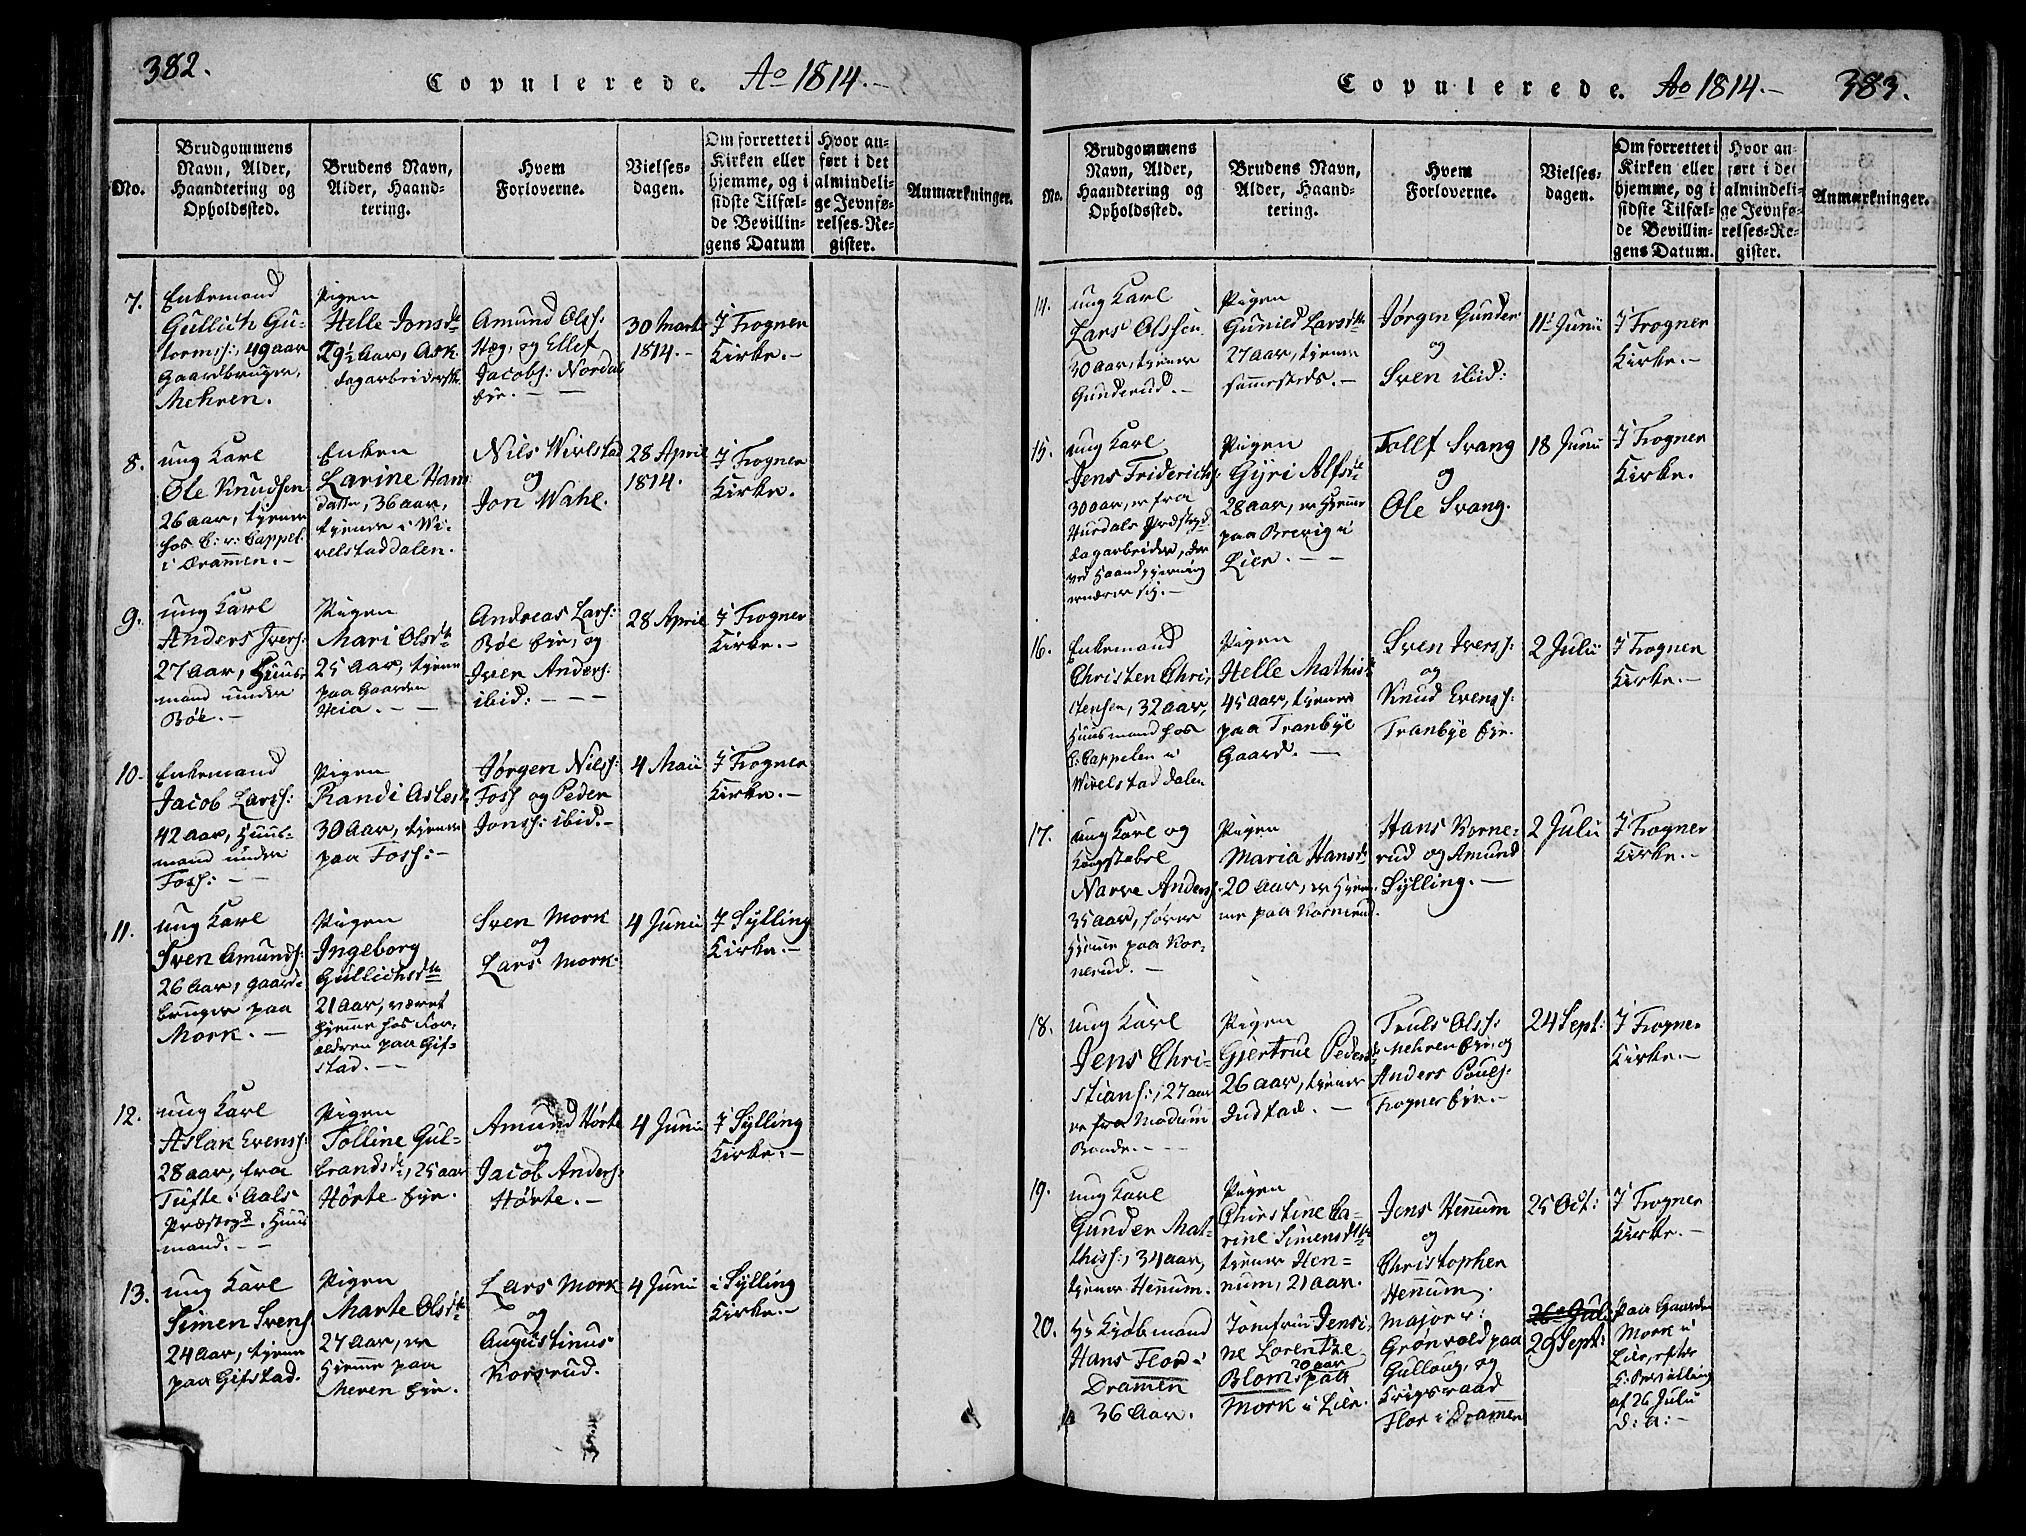 382.
Copulerede. Ao 1814.-
No.
Brudgommens
Navn, Alder,
Haandtering og
Opholdssted.
Brudens Navn,
Alder, Haand-
tering.
Hvem
Forloverne.
Vielses-
dagen.
Om forrettet i
Kirken eller
hjemme, og i
sidste Tilfæl-
de Bevillin-
gens Datum
Hvor an-
ført i det
almindeli-
ge Jevnfø-
relses-Re-
gister.
Anmærkninger.
7.
Enkemand
Gullich Gu-
tormss:, 49 aar
Gaardbruger,
Mehren.
Pigen
Helle Jonsdtr
29½ Aar, Ask.
dagarbeidersk.
Amund Olss:
Hæg, og Ellef
Jacobs: Nordal
eje. - -
30 Marts
1814.-
I Frogner
Kirke.-
8.
ung Karl
Ole Knudsen
26 aar, tjener
hos C: v: Cappel:
i Drammen.-
Enken
Karine Hans
datter, 36 aar,
tjener i Wi-
velstaddalen.
Nils Wivlstad
og
Jon Wahl.
28 April
1814.
I Frogner
Kirke.
9.
ung Karl
Anders Ivers:
27 Aar, Huus-
mand under
Böe.-
Pigen
Mari Olsdtr
25 Aar, tjener
paa Gaarden
Heia. - -
Andreas Lars:
Böe eje, og
Iver Anders:
ibid: - - -
28 April
I Frogner
Kirke.-
10.
Enkemand
Jacob Larss:
42 aar, Huus-
mand under
Foss: - -
Pigen
Randi Aslesdtr
30 Aar, tjener
paa Foss:-
Jørgen Nilss:
Foss og Peder
Jonss: ibid.-
4 Maii
I Frogner
Kirke.-
11.
ung Karl
Sven Amunds:
26 aar, gaard-
bruger paa
Mork. -
Pigen
Ingeborg
Gullichsdtr
21 Aar, været
hjemme hos For-
ældren paa Gif-
stad. -
Sven Mork
og
Lars Mork.
4 Junii
I Sylling
Kirke.-
12.
ung Karl
Aslak Evenss:
28 aar, fra
Tufte i Aals
Præstegd, Huus
mand. - -
Pigen
Tolline Gul-
brandsdtr, 25 aar
Hörte eje.
Amund Hörte
og
Jacob Anders:
Hörte. -
4 Junii
I Sylling
Kirke.-
13.
ung Karl
Simen Svens:
24 Aar, tjener
paa Gifstad.
Pigen
Marte Olsdtr
27 Aar, er
hjemme paa
Meren eje.
Lars Mork
og
Augustinus
Korsrud.
4 Junii
i Sylling
Kirke.-
383.
Copulerede. Ao 1814.-
No.
Brudgommens
Navn, Alder,
Haandtering og
Opholdssted.
Brudens Navn,
Alder, Haand-
tering.
Hvem
Forloverne.
Vielses-
dagen.
Om forrettet i
Kirken eller
hjemme, og i
sidste Tilfæl-
de Bevillin-
gens Datum.
Hvor an-
ført i det
almindeli-
ge Jevnfø-
relses-Re-
gister.
Anmærkninger.
14.
ung Karl
Lars Olssen
30 Aar, tjener
Gunderud.-
Pigen
Gunild Larsdtr
27 Aar, tjener
sammesteds.-
Jørgen Gunder
og
Sven ibid:
11t Junii
I Frogner
Kirke.-
15.
ung Karl
Jens Friderichs:
30 aar, er fra
Hurdals Præstegd
dagarbeider, der
ved Haandgjerning
ernærer sig.-
Pigen
Gyri Alfsdtr
28 aar, er hjemme
paa Brevig i
Lier. - -
Tollf Svang
og
Ole Svang.
18 Junii
I Frogner
Kirke.
16.
Enkemand
Christen Chri-
stensen, 32 aar,
Huusmand hos
C: Cappelen i
Wivelstaddalen
Pigen
Helle Mathisd
45 Aar, tjener
paa Tranbye
Gaard. -
Sven Iverss:
og
Knud Evenss:
Tranbye eje.
2 Julii
I Frogner
Kirke.-
17.
ung Karl og
Langstabel
Narve Anders:
35 aar, hører
hjemme paa Kor-
nerud. -
Pigen
Maria Hansdtr
20 Aar, er hjem-
me paa Kornerud.
Hans Korne-
rud og Amund
Sylling. -
2 Julii
I Frogner
Kirke.-
18.
ung Karl
Jens Chri-
stians:, 27 aar
er fra Modum
Bonde. - -
Pigen
Giertrue Pedersd
26 aar, tjener
Justad. -
Truls Olss:
Mehren eje, og
Anders Pouls:
Frogner eje.-
24 Sept:
I Frogner
Kirke.-
19.
ung Karl
Gunder Mat-
thiss:, 34 aar,
tjener Hennum.
Pigen
Christine Ca-
rine Simensdtr
tjener Hen-
num, 21 aar.
Jens Hennum
og
Christopher
Hennum.
25 Oct:
I Frogner
Kirke.-
20.
Hr Kjøbmand
Hans Flor i
Dramen
36 Aar.
Jomfru Jensi-
ne Lorentze
Blom, 20 aar paa
Mork i Lier.
Major v:
Grønvold paa
Gulloug, og
Krigsraad
Flor i Dramen
26 Jul:
29 Sept:
paa Gaarden
Mork i
Lier, efter
K: Bevilling
af 26 Julii
d: a:-